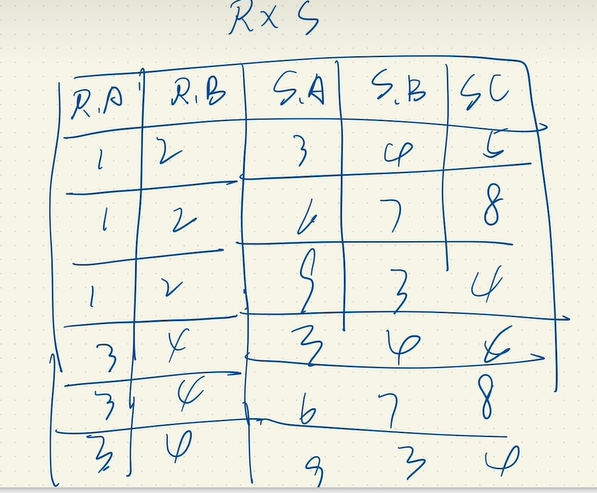 R X S
R.A R.B S.A S.B SC
1 2 3 4 5
1 2 6 7 8
1 2 9 3 4
3 4 3 4
3 4 6 7 8
3 4 9 3 4